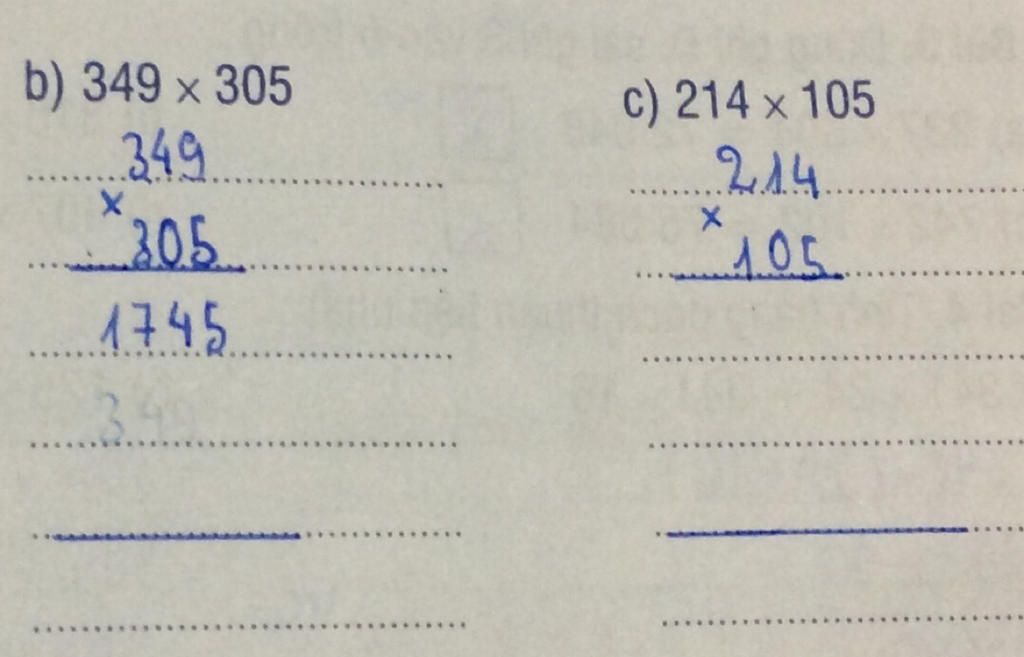 b) 349 × 305
349
×
305
1745
349
c) 214 × 105
214
×
105